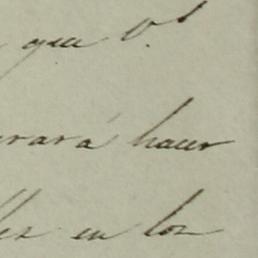 que V.s
rará hacer
les en los